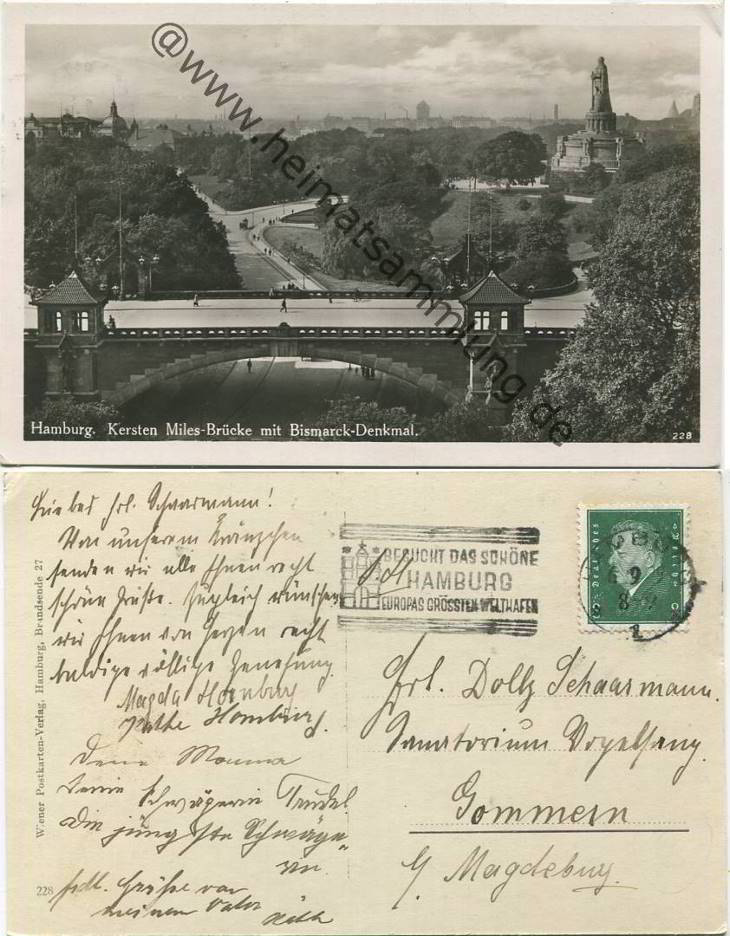 @www.heimatsammlung.de
Hamburg. Kersten Miles-Brücke mit Bismarck-Denkmal.
228
Liebes Frl. Schaarmann!
Von unserem Kränzchen
senden wir alle Ihnen recht
schöne Grüße. Zugleich wünschen
wir Ihnen von Herzen recht
baldige völlige Genesung.
Magda Homburg
Käthe Homburg.
Deine Mamma
Deine Schwägerin Trudel
Die jüngste Schwäge-
rin
frdl. Grüße von
meinem Vater
Wiener Postkarten-Verlag, Hamburg, Brandsende 27
228
BESUCHT DAS SCHÖNE
HAMBURG
EUROPAS GRÖSSTEN WELTHAFEN
Deutsches Reich
8
HAMBURG
9
1
Frl. Dolly Schaarmann.
Sanatorium Vogelsang.
Gommern
b/ Magdeburg.